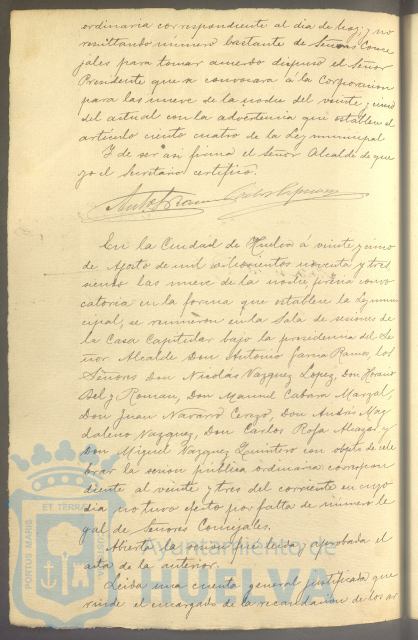 ordinaria correspondiente al dia de hoy, y no
resultando número bastante de Señores Conce
jales para tomar acuerdo dispuso el Señor
Presidente que se convocara á la Corporacion
para las nueve de la noche del veinte y cinco
del actual con la advertencia que establece el
artículo ciento cuatro de la Ley municipal
Y de ser asi firma el Señor Alcalde de que
yo el Secretario certifico.
En la Ciudad de Huelva á veinte y cinco
de Agosto de mil ochocientos noventa y tres
siendo las nueve de la noche previa convo
catoria en la forma que establece la Ley muni
cipal, se reunieron en la Sala de sesiones de
la Casa Capitular bajo la presidencia del Se
ñor Alcalde Don Antonio Garcia Ramos, los
Señores Don Nicolás Vazquez Lopez, Don
y Roman, Don Manuel
Don Juan Navarro Cerezo, Don Andrés Mag
daleno Vazquez, Don Carlos Rofa y
Don Miguel Vazquez Quintero con objeto de cele
brar la sesion pública ordinaria correspon
diente al veinte y tres del corriente en cuyo
dia no tuvo efecto por falta de número le
gal de Señores Concejales.
Abierta la sesion fue leida y aprobada el
acta de la anterior.
Leida una cuenta general justificada que
rinde el encargado de la recaudacion de los ar
PORTUS MARIS ET TERRAE
Ayuntamiento de
HUELVA